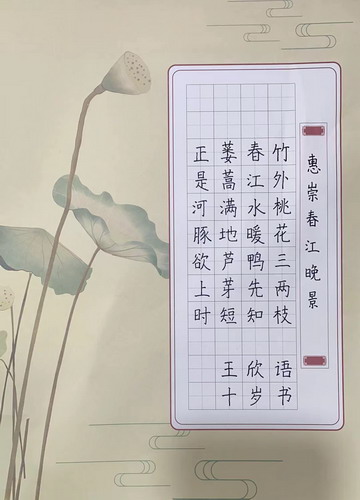 惠崇春江晚景
竹外桃花三两枝
春江水暖鸭先知
蒌蒿满地芦芽短
正是河豚欲上时
王欣语
十岁书